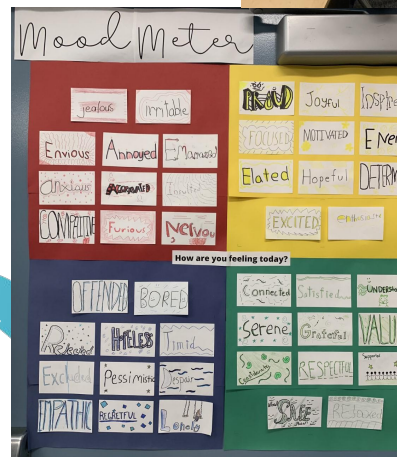 Mood Meter
jealous
irritable
Envious
Annoyed
Embarrassed
anxious
Competitive
Furious
Nervou
PROUD
Joyful
Inspire
FOCUSED
MOTIVATED
Ener
Elated
Hopeful
DETERM
EXCITED
How are you feeling today?
OFFENDED
BORED
Rejected
HOPELESS
Timid
Excluded
Pessimistic
Despair
EMPATHIC
REGRETFUL
Lonely
Connected
Satisfied
UNDERSTO
Serene
Grateful
VALU
Considerate
RESPECTFUL
Supported
SAFE
Relaxed